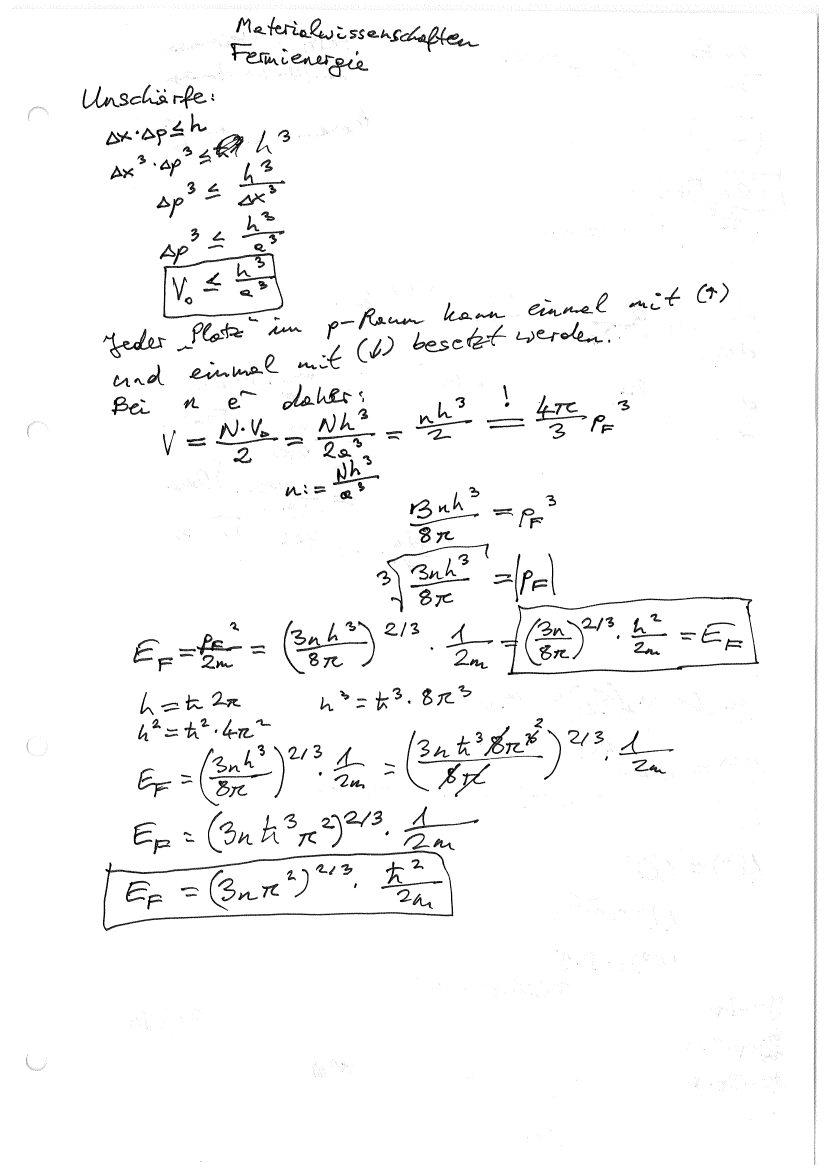 Materialwissenschaften
Fermienergie
Unschärfe:
Δx·Δp ≤ h
Δx³·Δp³ ≤ h³
Δp³ ≤ h³/Δx³
Δp³ ≤ h³/a³
V₀ ≤ h³/a³
Jeder „Platz“ im p-Raum kann einmal mit (↑)
und einmal mit (↓) besetzt werden.
Bei n e⁻ daher:
V = N·V₀/2 = Nh³/2a³ = nh³/2 =! 4π/3 p_F³
n := Nh³/a³
3nh³/8π = p_F³
³√(3nh³/8π) = |p_F|
E_F = p_F²/2m = (3nh³/8π)^2/3 · 1/2m = (3n/8π)^2/3 · h²/2m = E_F
h = ħ 2π h³ = ħ³·8π³
h² = ħ²·4π²
E_F = (3nh³/8π)^2/3 · 1/2m = (3nħ³8π³ ²/8π)^2/3 · 1/2m
E_F = (3nħ³π²)^2/3 · 1/2m
E_F = (3nπ²)^2/3 · ħ²/2m